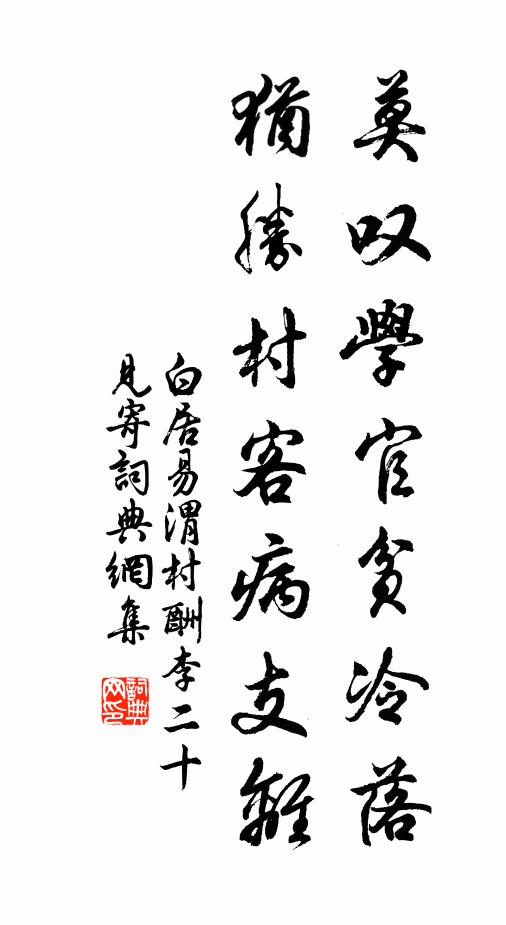 莫叹學官貧冷落
猶勝村客病支離
白居易渭村酬李二十
見寄詞典網集
詞典
网印